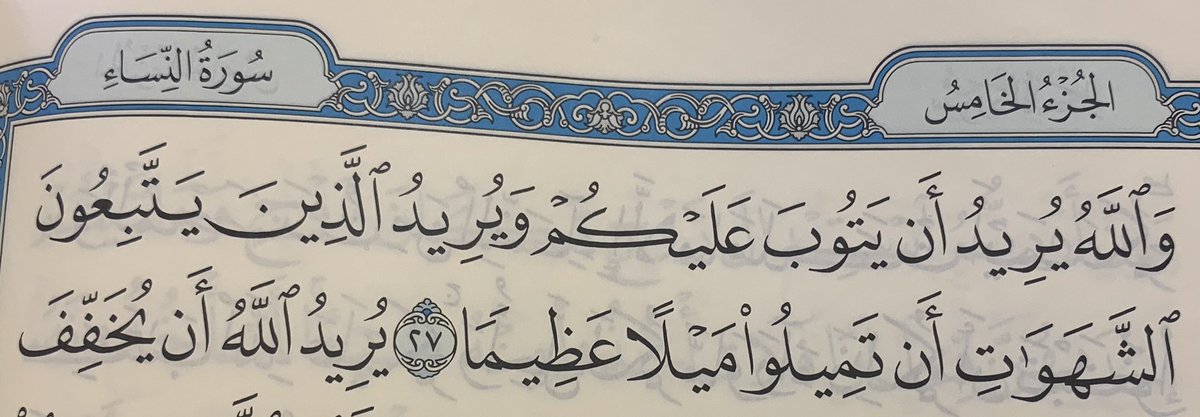 الجُزْءُ الخَامِسُ
سُورَةُ النِّسَاءِ
وَٱللَّهُ يُرِيدُ أَن يَتُوبَ عَلَيْكُمْ وَيُرِيدُ ٱلَّذِينَ يَتَّبِعُونَ
ٱلشَّهَوَٰتِ أَن تَمِيلُوا۟ مَيْلًا عَظِيمًا ٢٧ يُرِيدُ ٱللَّهُ أَن يُخَفِّفَ